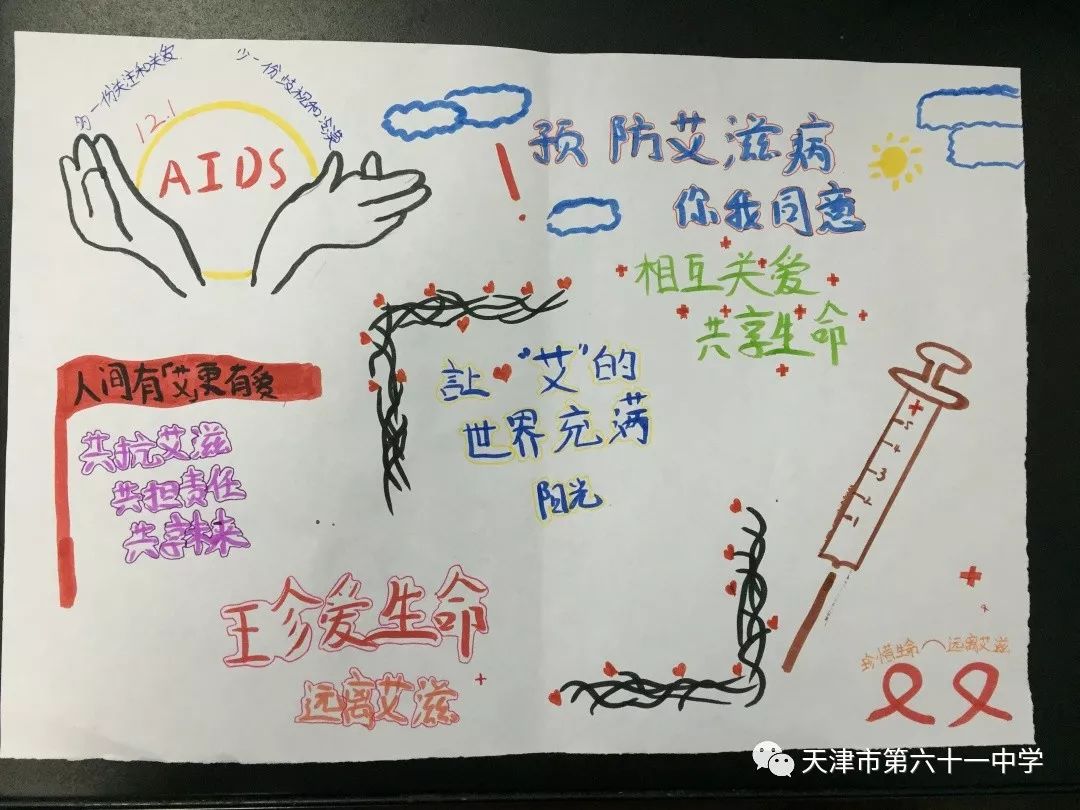 多一份关注和关爱
少一份歧视和
12.1
AIDS
预防艾滋病
你我同意
相互关爱
共享生命
人间有“艾”更有爱
共抗艾滋
共担责任
共享未来
让“艾”的
世界充满
阳光
珍爱生命
远离艾滋
珍惜生命
远离艾滋
天津市第六十一中学